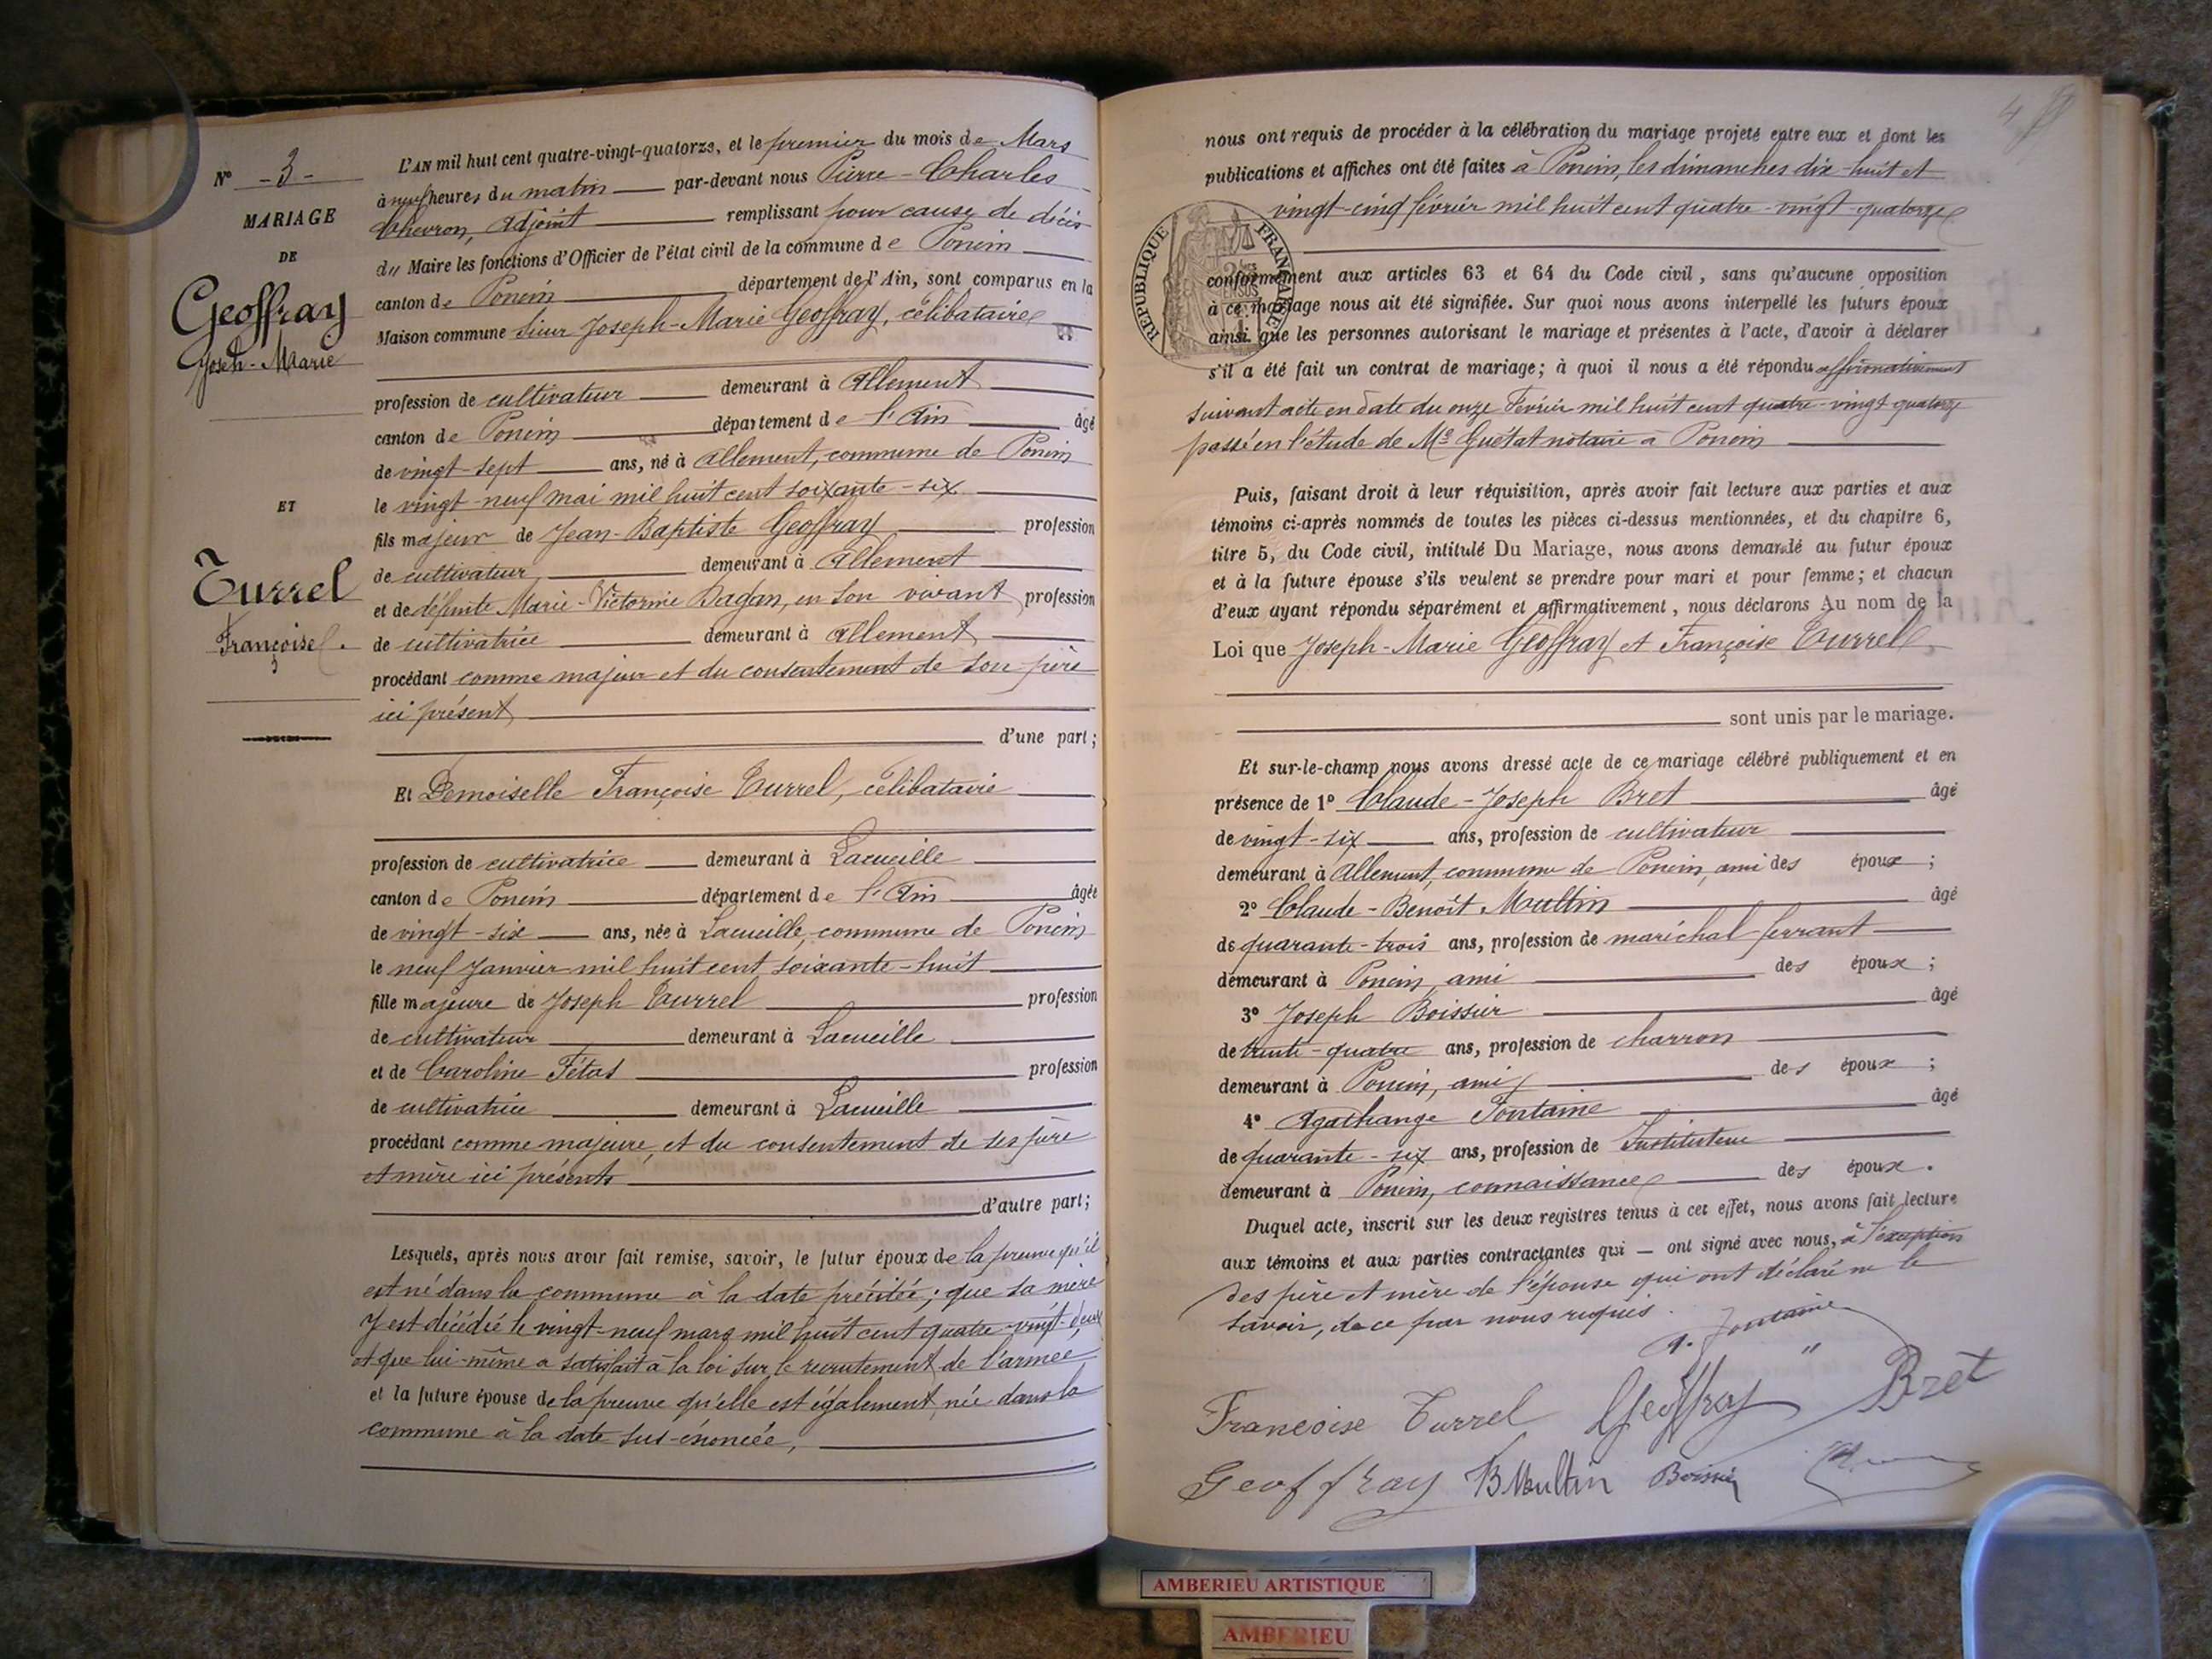 N° - 3 -
MARIAGE
DE
Geoffray
Joseh-Marie
ET
Turrel
Françoise.
L'AN mil huit cent quatre-vingt-quatorze, et le premier du mois de Mars
à neuf heures du matin par-devant nous Pierre-Charles
Chevron, Adjoint remplissant pour cause de décès
d" Maire les fonctions d'Officier de l'état civil de la commune de Poncin
canton de Poncin département de l'Ain, sont comparus en la
Maison commune Sieur Joseph-Marie Geoffray, célibataire
profession de cultivateur demeurant à Allement
canton de Poncin département de l'Ain âgé
de vingt-sept ans, né à Allement, commune de Poncin
le vingt-neuf mai mil huit cent soixante-six
fils majeur de Jean-Baptiste Geoffray profession
de cultivateur demeurant à Allement
et de défunte Marie-Victorine Dagan, en son vivant profession
de cultivatrice demeurant à Allement
procédant comme majeur et du consentement de son père
ici présent
d'une part;
Et Demoiselle Françoise Turrel, célibataire
profession de cultivatrice demeurant à Lacueille
canton de Poncin département de l'Ain âgée
de vingt-six ans, née à Lacueille, commune de Poncin
le neuf Janvier mil huit cent soixante-huit
fille majeure de Joseph Turrel profession
de cultivateur demeurant à Lacueille
et de Caroline Fétas profession
de cultivatrice demeurant à Lacueille
procédant comme majeure, et du consentement de ses père
et mère ici présents
d'autre part;
Lesquels, après nous avoir fait remise, savoir, le futur époux de la preuve qu'il
est né dans la commune à la date précitée; que sa mère
y est décédée le vingt-neuf mars mil huit cent quatre-vingt-deux
et que lui-même a satisfait à la loi sur le recrutement de l'armée
et la future épouse de la preuve qu'elle est également née dans la
commune à la date sus-énoncée,
4
nous ont requis de procéder à la célébration du mariage projeté entre eux et dont les
publications et affiches ont été faites à Poncin, les dimanches dix-huit et
vingt-cinq février mil huit cent quatre-vingt-quatorze
REPUBLIQUE FRANÇAISE
conformément aux articles 63 et 64 du Code civil, sans qu'aucune opposition
à ce mariage nous ait été signifiée. Sur quoi nous avons interpellé les futurs époux
ainsi que les personnes autorisant le mariage et présentes à l'acte, d'avoir à déclarer
s'il a été fait un contrat de mariage; à quoi il nous a été répondu affirmativement
suivant acte en date du onze Février mil huit cent quatre-vingt quatorze
passé en l'étude de Me Guétat notaire à Poncin
Puis, faisant droit à leur réquisition, après avoir fait lecture aux parties et aux
témoins ci-après nommés de toutes les pièces ci-dessus mentionnées, et du chapitre 6,
titre 5, du Code civil, intitulé Du Mariage, nous avons demandé au futur époux
et à la future épouse s'ils veulent se prendre pour mari et pour femme; et chacun
d'eux ayant répondu séparément et affirmativement, nous déclarons Au nom de la
Loi que Joseph-Marie Geoffray et Françoise Turrel
sont unis par le mariage.
Et sur-le-champ nous avons dressé acte de ce mariage célébré publiquement et en
présence de 1° Claude-Joseph Bret âgé
de vingt-six ans, profession de cultivateur
demeurant à Allement, commune de Poncin, ami des époux;
2° Claude-Benoît Moultin âgé
de quarante-trois ans, profession de maréchal-ferrant
demeurant à Poncin, ami des époux;
3° Joseph Boissier âgé
de trente-quatre ans, profession de charron
demeurant à Poncin, ami des époux;
4° Agathange Fontaine âgé
de quarante-six ans, profession de Instituteur
demeurant à Poncin, connaissance des époux.
Duquel acte, inscrit sur les deux registres tenus à cet effet, nous avons fait lecture
aux témoins et aux parties contractantes qui — ont signé avec nous, à l'exception
des père et mère de l'épouse qui ont déclaré ne le
savoir, de ce par nous requis.
A. Fontaine
Françoise Turrel Geoffray Bret
Geoffray B Moultin Boissier
AMBERIEU ARTISTIQUE
AMBERIEU